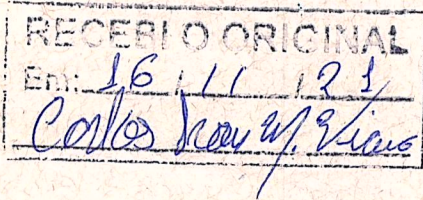 RECEBI O ORIGINAL
Em: 16 / 11 / 21
Carlos M. Viana